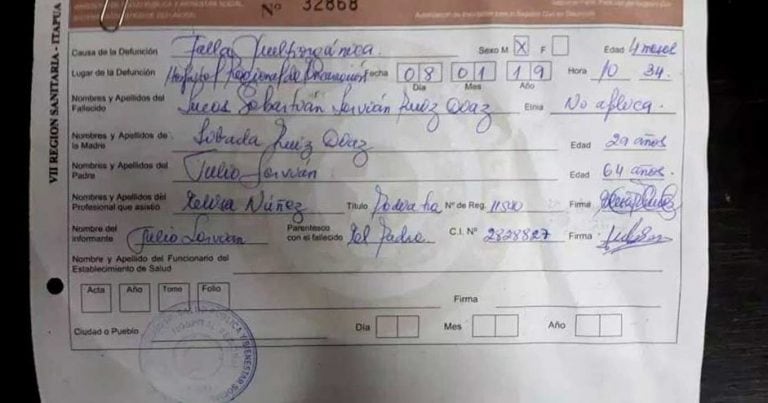 MINISTERIO DE SALUD PÚBLICA Y BIENESTAR SOCIAL
Nº 32868
VII REGION SANITARIA - ITAPUA
Causa de la Defunción Falla Multiorgánica. Sexo M X F Edad 4 meses
Lugar de la Defunción Hospital Regional de Encarnación Fecha 08 01 19 Hora 10 34
Día Mes Año
Nombres y Apellidos del Fallecido Lucas Sebastván Servián Ruiz Díaz Etnia No aplica.
Nombres y Apellidos de la Madre Ruiz Díaz Edad 29 años
Nombres y Apellidos del Padre Julio Servián Edad 64 años.
Nombres y Apellidos del Profesional que asistió Núñez Título Pediatra Nº de Reg. Firma
Nombre del informante Julio Servián Parentesco con el fallecido El Padre. C.I. Nº 2828827 Firma
Nombre y Apellido del Funcionario del Establecimiento de Salud
Acta Año Tomo Folio
Firma
Ciudad o Pueblo Día Mes Año
PUBLICA Y BIENESTAR SOCIAL
HOSPITAL REGIONAL